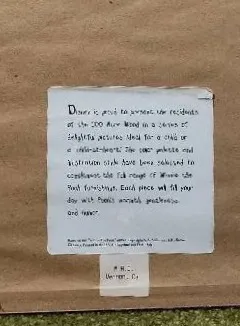 Disney is proud to present the residents
of the 100 Acre Wood in a series of
delightful pictures ideal for a child or
a child-at-heart! The color palette and
illustration style have been selected to
complement the full range of Winnie the
Pooh furnishings. Each piece will fill your
day with Pooh's warmth, gentleness
and humor.
P.M.I.
Vernon, Ca